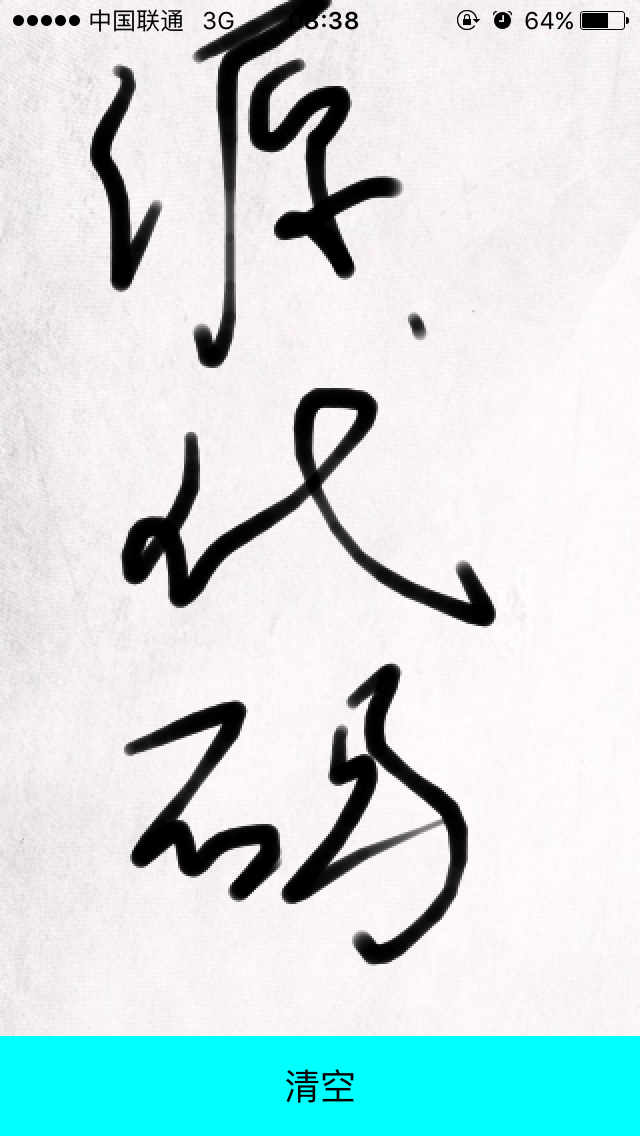 中国联通 3G 08:38 64%
源
代
码
清空